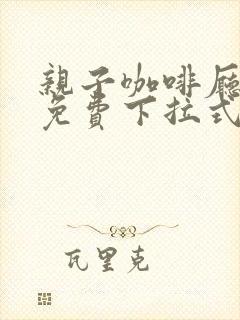 親子咖啡廳
免費下拉式
瓦里克